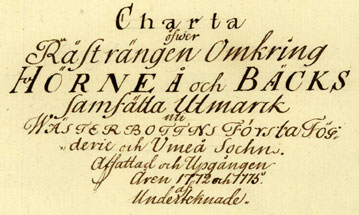 Charta
öfwer
Råsträngen Omkring
HÖRNEÅ och BÄCKS
samfälta Utmark
uti
WÄSTERBOTTNS Första Fög-
derie och Umeå Sochn.
Affattad och Upgången
Åren 1772 och 1775
af
Undertecknade.